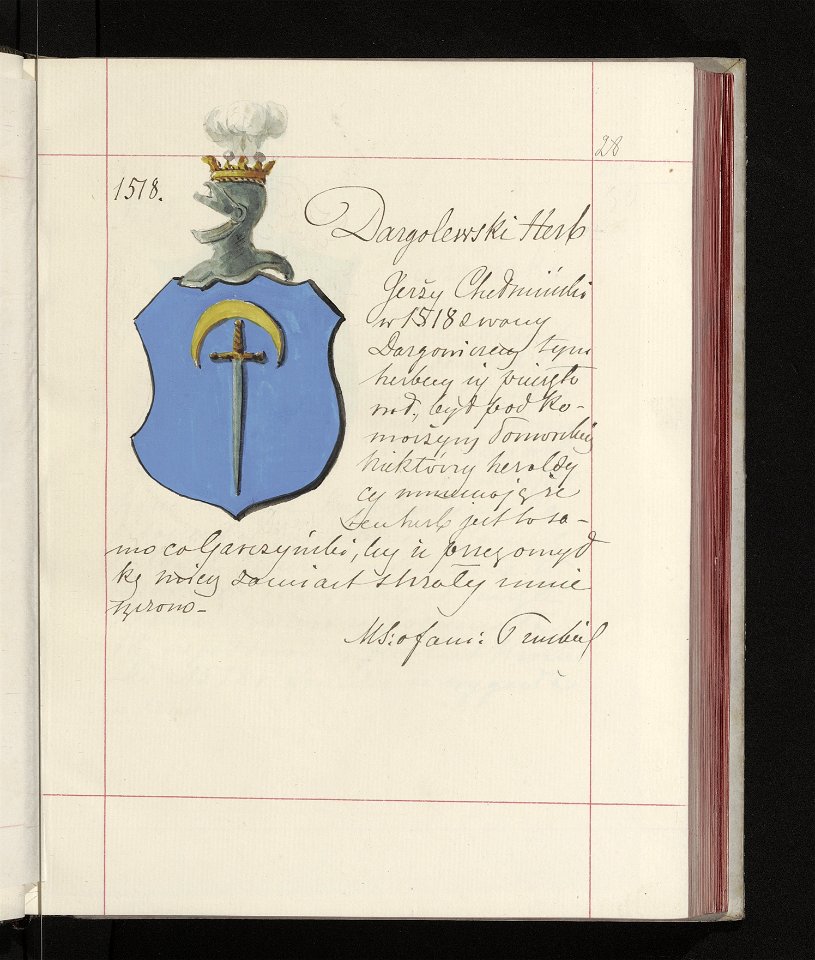 28
1518.
Dargolewski Herb
Jerzy Chełmiński
w 1518 zwany
tym
herbem się pieczęto
wał, był pod ko-
morzym Pomorskim
niektórzy heraldy
cy mniemają że
ten herb jest to sa-
mo co Garczyński, lecz iż przez omył
kę miecz zamiast strzały umie
szczono-
MS: o fam: